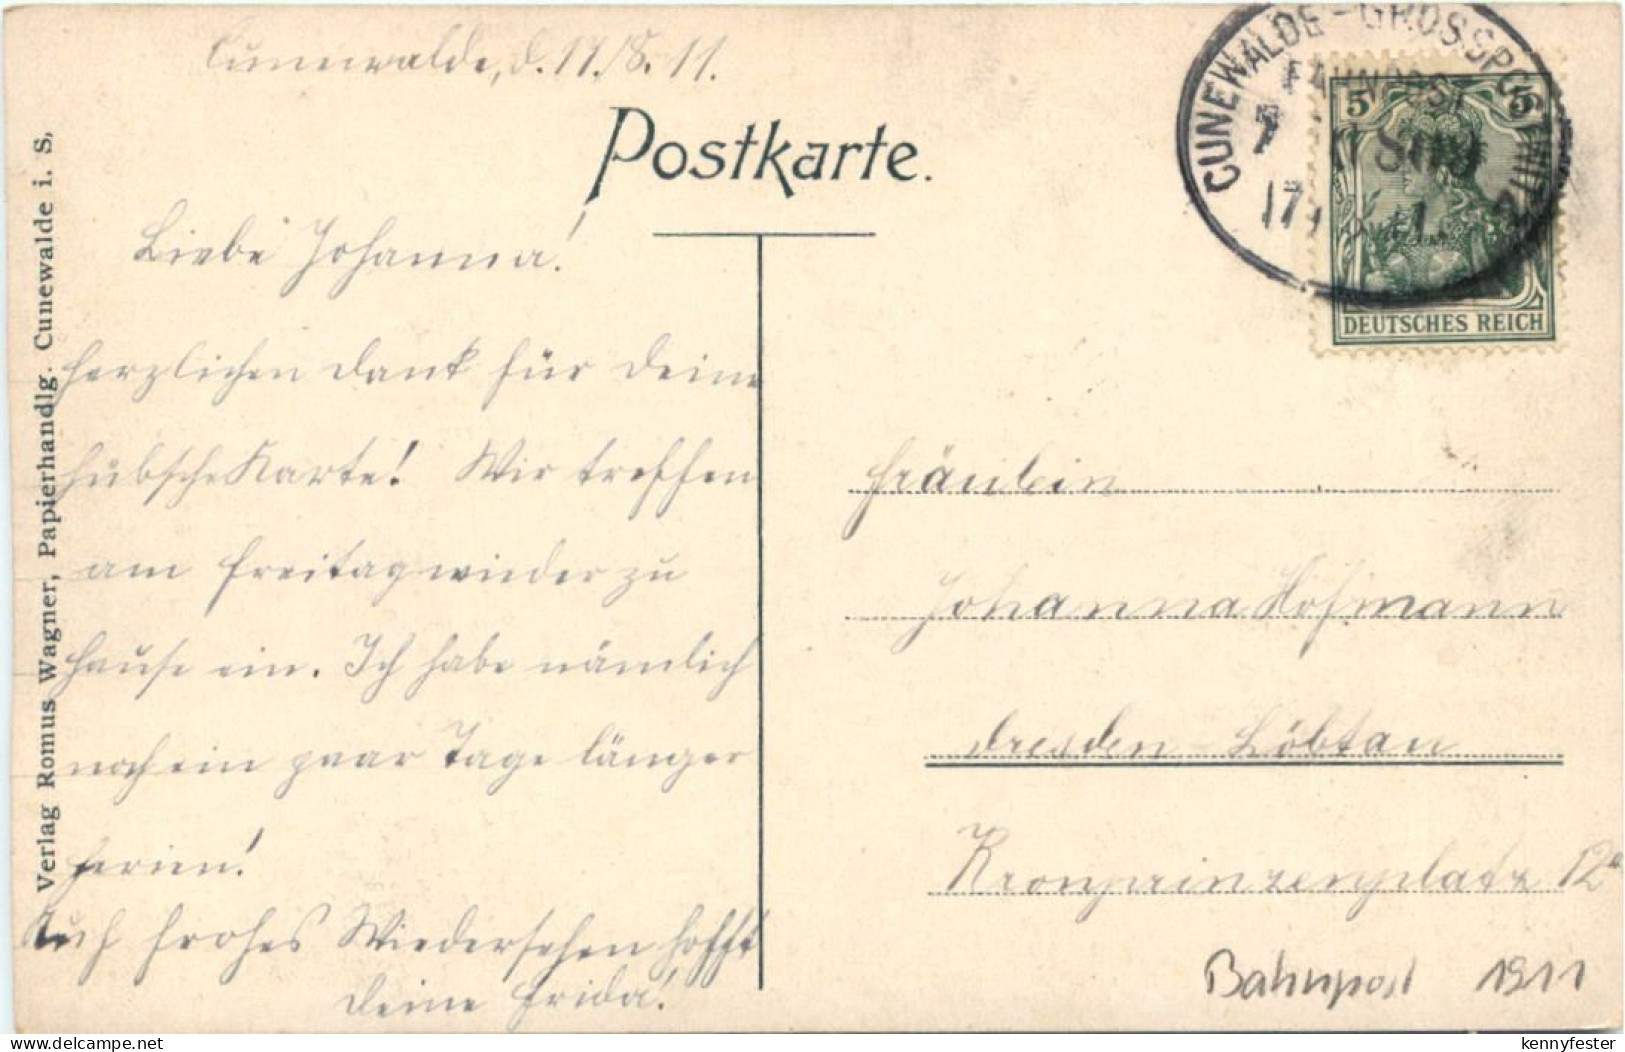 Cunewalde, d. 17./8. 11.
Postkarte.
Liebe Johanna!
herzlichen Dank für Deine
hübsche Karte! Wir treffen
am Freitag wieder zu
Hause ein. Ich habe nämlich
noch ein paar Tage länger
Ferien!
Auf frohes Wiedersehen hofft
Deine Frida!
Verlag Romus Wagner, Papierhandlg. Cunewalde i. S.
CUNEWALDE-GROSSPOSTWITZ
BAHNPOST
17
5 5
DEUTSCHES REICH
Fräulein
Johanna Hofmann
Dresden-Löbtau
Kronprinzenplatz 12
Bahnpost 1911
delcampe.net
kennyfester